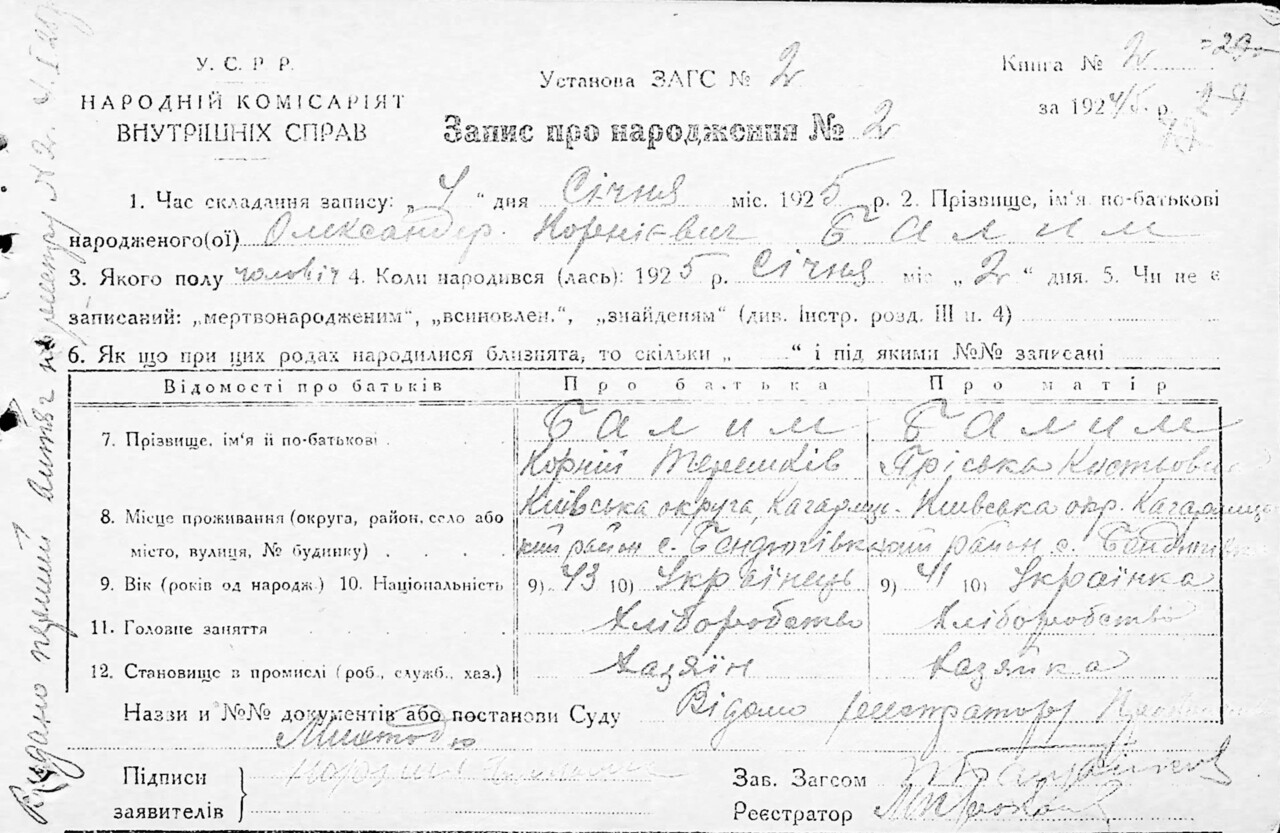 У. С. Р. Р.
НАРОДНІЙ КОМІСАРІЯТ
ВНУТРІШНІХ СПРАВ
Установа ЗАГС № 2
Книга № 2
за 1924/5 р.
Запис про народження № 2
1. Час складання запису: „ 4 " дня Січня міс. 1925 р. 2. Прізвище, ім'я по-батькові
народженого(ої) Олександер Корнієвич Балим
3. Якого полу чоловіч 4. Коли народився (лась): 1925 р. Січня міс „ 2 " дня. 5. Чи не є
записаний: „мертвонародженим", „всиновлен.", „знайденям" (див. Інстр. розд. III п. 4)
6. Як що при цих родах народилися близнята, то скільки „ " і під якими №№ записані
Відомості про батьків Про батька Про матір
7. Прізвище, ім'я й по-батькові Балим Балим
Корній Терешків Пріська Костьов
8. Місце проживання (округа, район, село або Київська округа, Кагарлиц- Київська окр. Кагарлиць
місто, вулиця, № будинку) кий район с. Бендюгівк кий район с.
9. Вік (років од народж.) 10. Національність 9) 43 10) Українець 9) 41 10) Українка
11. Головне заняття Хліборобство Хліборобство
12. Становище в промислі (роб., служб., хаз.) Хазяїн Хазяйка
Назви и №№ документів або постанови Суду Відомо реєстратору
Підписи
заявителів
Зав. Загсом
Реєстратор
Видано перший витяг по